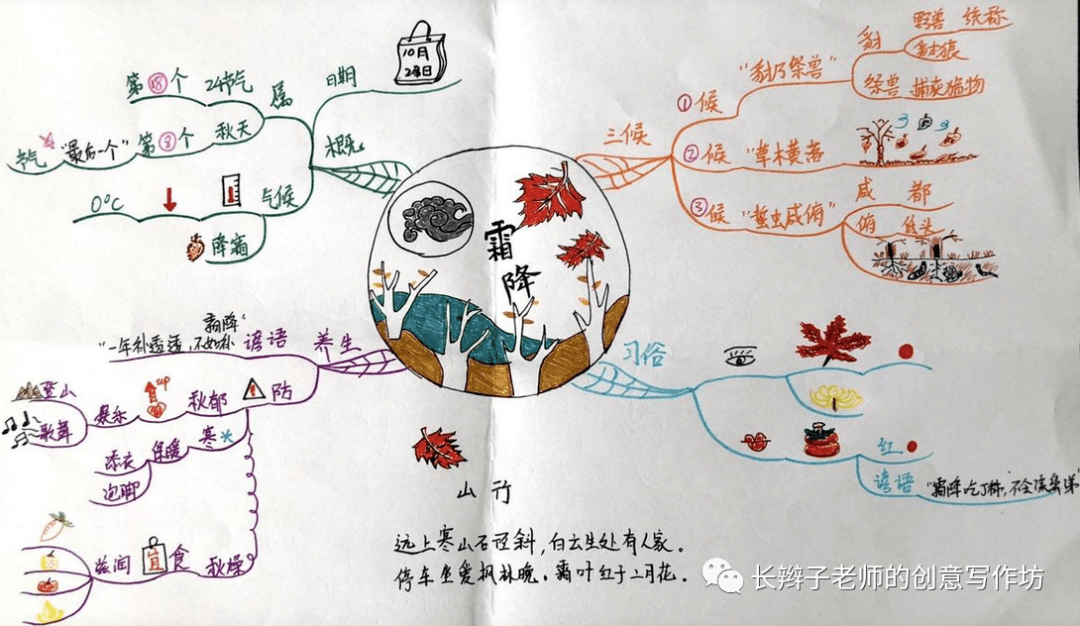 霜降
概况
日期
10月
属
24节气
第⑱个
秋天
第⑥个
"最后一个"
节气
气候
0°C
降霜
三候
①候 "豺乃祭兽"
豺
野兽 统称
豺狼
祭兽 捕获猎物
②候 "草木黄落"
③候 "蛰虫咸俯"
咸 都
俯 低头
养生
谚语
"一年补透透,不如补霜降"
防
秋郁
up
娱乐
登山
歌舞
寒
保暖
添衣
泡脚
秋燥
食
宜
滋润
习俗
红
谚语
山行
远上寒山石径斜,白云生处有人家。
停车坐爱枫林晚,霜叶红于二月花。
长辫子老师的创意写作坊